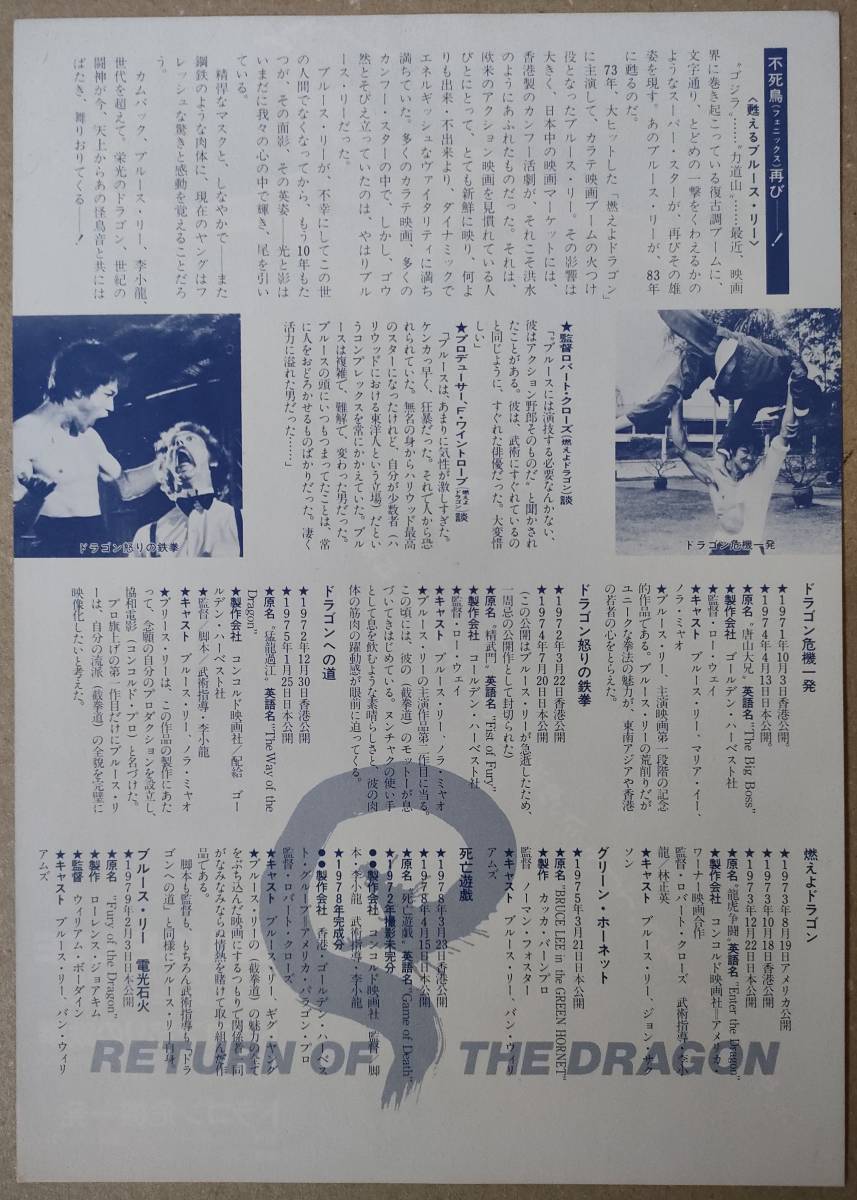 不死鳥(フェニックス)再び——!
〈甦えるブルース・リー〉
“ゴジラ”……“力道山”……最近、映画
界に巻き起こっている復古調ブームに、
文字通り、とどめの一撃をくわえるかの
ようなスーパー・スターが、再びその雄
姿を現す。あのブルース・リーが、83年
に甦るのだ。
73年、大ヒットした「燃えよドラゴン」
に主演して、カラテ映画ブームの火つけ
役となったブルース・リー。その影響は
大きく、日本中の映画マーケットには、
香港製のカンフー活劇が、それこそ洪水
のようにあふれたものだった。それは、
欧米のアクション映画を見慣れている人
びとにとって、とても新鮮に映り、何よ
りも出来・不出来より、ダイナミックで
エネルギッシュなヴァイタリティに満ち
満ちていた。多くのカラテ映画、多くの
カンフー・スターの中で、しかし、ゴウ
然とそびえ立っていたのは、やはりブル
ース・リーだった。
ブルース・リーが、不幸にしてこの世
の人間でなくなってから、もう10年もた
つが、その面影、その英姿——光と影は
いまだに我々の心の中で輝き、尾を引い
ている。
精悍なマスクと、しなやかで——また
鋼鉄のような肉体に、現在のヤングはフ
レッシュな驚きと感動を覚えることだろ
う。
カムバック、ブルース・リー、李小龍、
世代を超えて、栄光のドラゴン、世紀の
闘神が今、天上からあの怪鳥音と共には
ばたき、舞りおりてくる——!
ドラゴン危機一発
★監督ロバート・クローズ(燃えよドラゴン)談
「“ブルースには演技する必要なんかない、
彼はアクション野郎そのものだ”と聞かされ
たことがある。彼は、武術にすぐれているの
と同じように、すぐれた俳優だった。大変惜
しい」
★プロデューサー、F・ワイントローブ(燃えよドラゴン)談
「ブルースは、あまりに気性が激しすぎた。
ケンカっ早く、狂暴だった。それで人から恐
れられていた。無名の身からハリウッド最高
のスターになったけれど、自分が少数者(ハ
リウッドにおける東洋人という立場)だとい
うコンプレックスを常にかかえていた。ブル
ースは複雑で、難解で、変わった男だった。
ブルースの頭にいつもつまってたことは、常
に人をおどろかせるものばかりだった。凄く
活力に溢れた男だった……」
ドラゴン怒りの鉄拳
ドラゴン危機一発
★1971年10月3日香港公開。
★1974年4月13日日本公開
★原名“唐山大兄”英語名“The Big Boss”
★製作会社 ゴールデン・ハーベスト社
★監督・ロー・ウェイ
★キャスト ブルース・リー、マリア・イー、
ノラ・ミャオ
★ブルース・リー、主演映画第一段階の記念
的作品である。ブルース・リーの荒削りだが
ユニークな拳法の魅力が、東南アジアや香港
の若者の心をとらえた。
ドラゴン怒りの鉄拳
★1972年3月22日香港公開
★1974年7月20日日本公開
(この公開はブルース・リーが急逝したため、
一周忌の公開作として封切られた)
★原名“精武門”英語名“Fist of Fury”
★製作会社 ゴールデン・ハーベスト社
★監督・ロー・ウェイ
★キャスト ブルース・リー、ノラ・ミャオ
★ブルース・リーの主演作品第二作目に当る。
この頃には、彼の〈截拳道〉のモットーが息
づいてきはじめている。ヌンチャクの使い手
として息を飲むような素晴らしさと、彼の肉
体の筋肉の躍動感が眼前に迫ってくる。
ドラゴンへの道
★1972年12月30日香港公開
★1975年1月25日日本公開
★原名“猛龍過江”英語名“The Way of the
Dragon”
★製作会社 コンコルド映画社/配給 ゴー
ルデン・ハーベスト社
★監督/脚本・武術指導・李小龍
★キャスト ブルース・リー、ノラ・ミャオ
★ブリース・リーは、この作品の製作にあた
って、念願の自分のプロダクションを設立し、
協和電影(コンコルド・プロ)と名づけた。
プロ旗上げの第一作目だけにブルース・リ
ーは、自分の流派〈截拳道〉の全貌を完璧に
映像化したいと考えた。
燃えよドラゴン
★1973年8月19日アメリカ公開
★1973年10月18日香港公開
★1973年12月22日日本公開
★原名“龍虎争闘”英語名“Enter the Dragon”
★製作会社 コンコルド映画社=アメリカ・
ワーナー映画合作
★監督・ロバート・クローズ 武術指導・李小
龍/林正英
★キャスト ブルース・リー、ジョン・サク
ソン
グリーン・ホーネット
★1975年3月21日日本公開
★原名“BRUCE LEE in the GREEN HORNET”
★製作 カッカ・バーンプロ
★監督 ノーマン・フォスター
★キャスト ブルース・リー、バン・ウィリ
アムズ
死亡遊戯
★1978年3月23日香港公開
★1978年4月15日日本公開
★原名“死亡遊戯”英語名“Game of Death”
★1972年撮影未完分
●製作会社 コンコルド映画社 監督/脚
本・李小龍 武術指導・李小龍
★1978年完成分
●製作会社 香港・ゴールデン・ハーベス
ト・グループ=アメリカ・パラゴン・プロ
監督・ロバート・クローズ
★キャスト ブルース・リー、ギグ・ヤング
★ブルース・リーの〈截拳道〉の魅力の全て
をぶち込んだ映画にするつもりで関係者一同
がなみなみならぬ情熱を賭けて取り組んだ作
品である。
脚本も監督も、もちろん武術指導も「ドラ
ゴンへの道」と同様にブルース・リー自身。
ブルース・リー 電光石火
★1979年2月3日日本公開
★原名 “Fury of the Dragon”
★製作 ローレンス・ジョアキム
★監督 ウィリアム・ボーダイン
★キャスト ブルース・リー、バン・ウィリ
アムズ
RETURN OF THE DRAGON